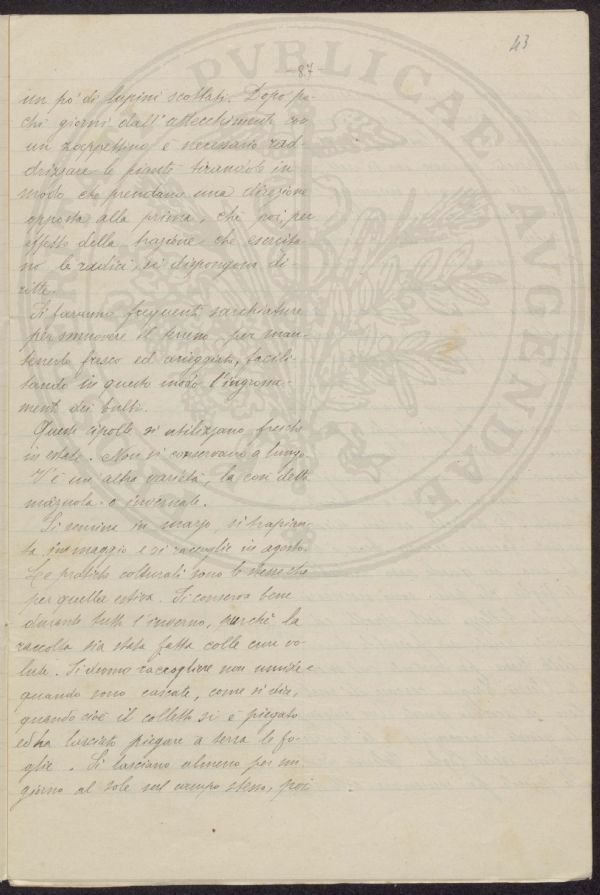 43
-87-
un po' di lupini scottati. Dopo po-
chi giorni dall'attecchimento con
un zappettino è necessario rad-
drizzare le piante tirandole in
modo che prendano una direzione
opposta alla prima, che poi per
effetto della trazione che esercita-
no le radici, si dispongono di-
ritte.
Si faranno frequenti sarchiature
per smuovere il terreno per man-
tenerlo fresco ed arieggiato, facili-
tando in questo modo l'ingrossa-
mento dei bulbi.
Queste cipolle si utilizzano fresche
in estate. Non si conservano a lungo.
V'è un'altra varietà, la così detta
o invernale.
Si semina in marzo, si trapian-
ta in maggio e si raccoglie in agosto.
Le pratiche colturali sono le stesse che
per quella estiva. Si conserva bene
durante tutto l'inverno, purchè la
raccolta sia stata fatta colle cure vo-
lute. Si devono raccogliere non umide e
quando sono cascate, come si dice,
quando cioè il colletto si è piegato
ed ha lasciato piegare a terra le fo-
glie. Si lasciano almeno per un
giorno al sole sul campo stesso, poi
PVBLICAE
AVGENDAE